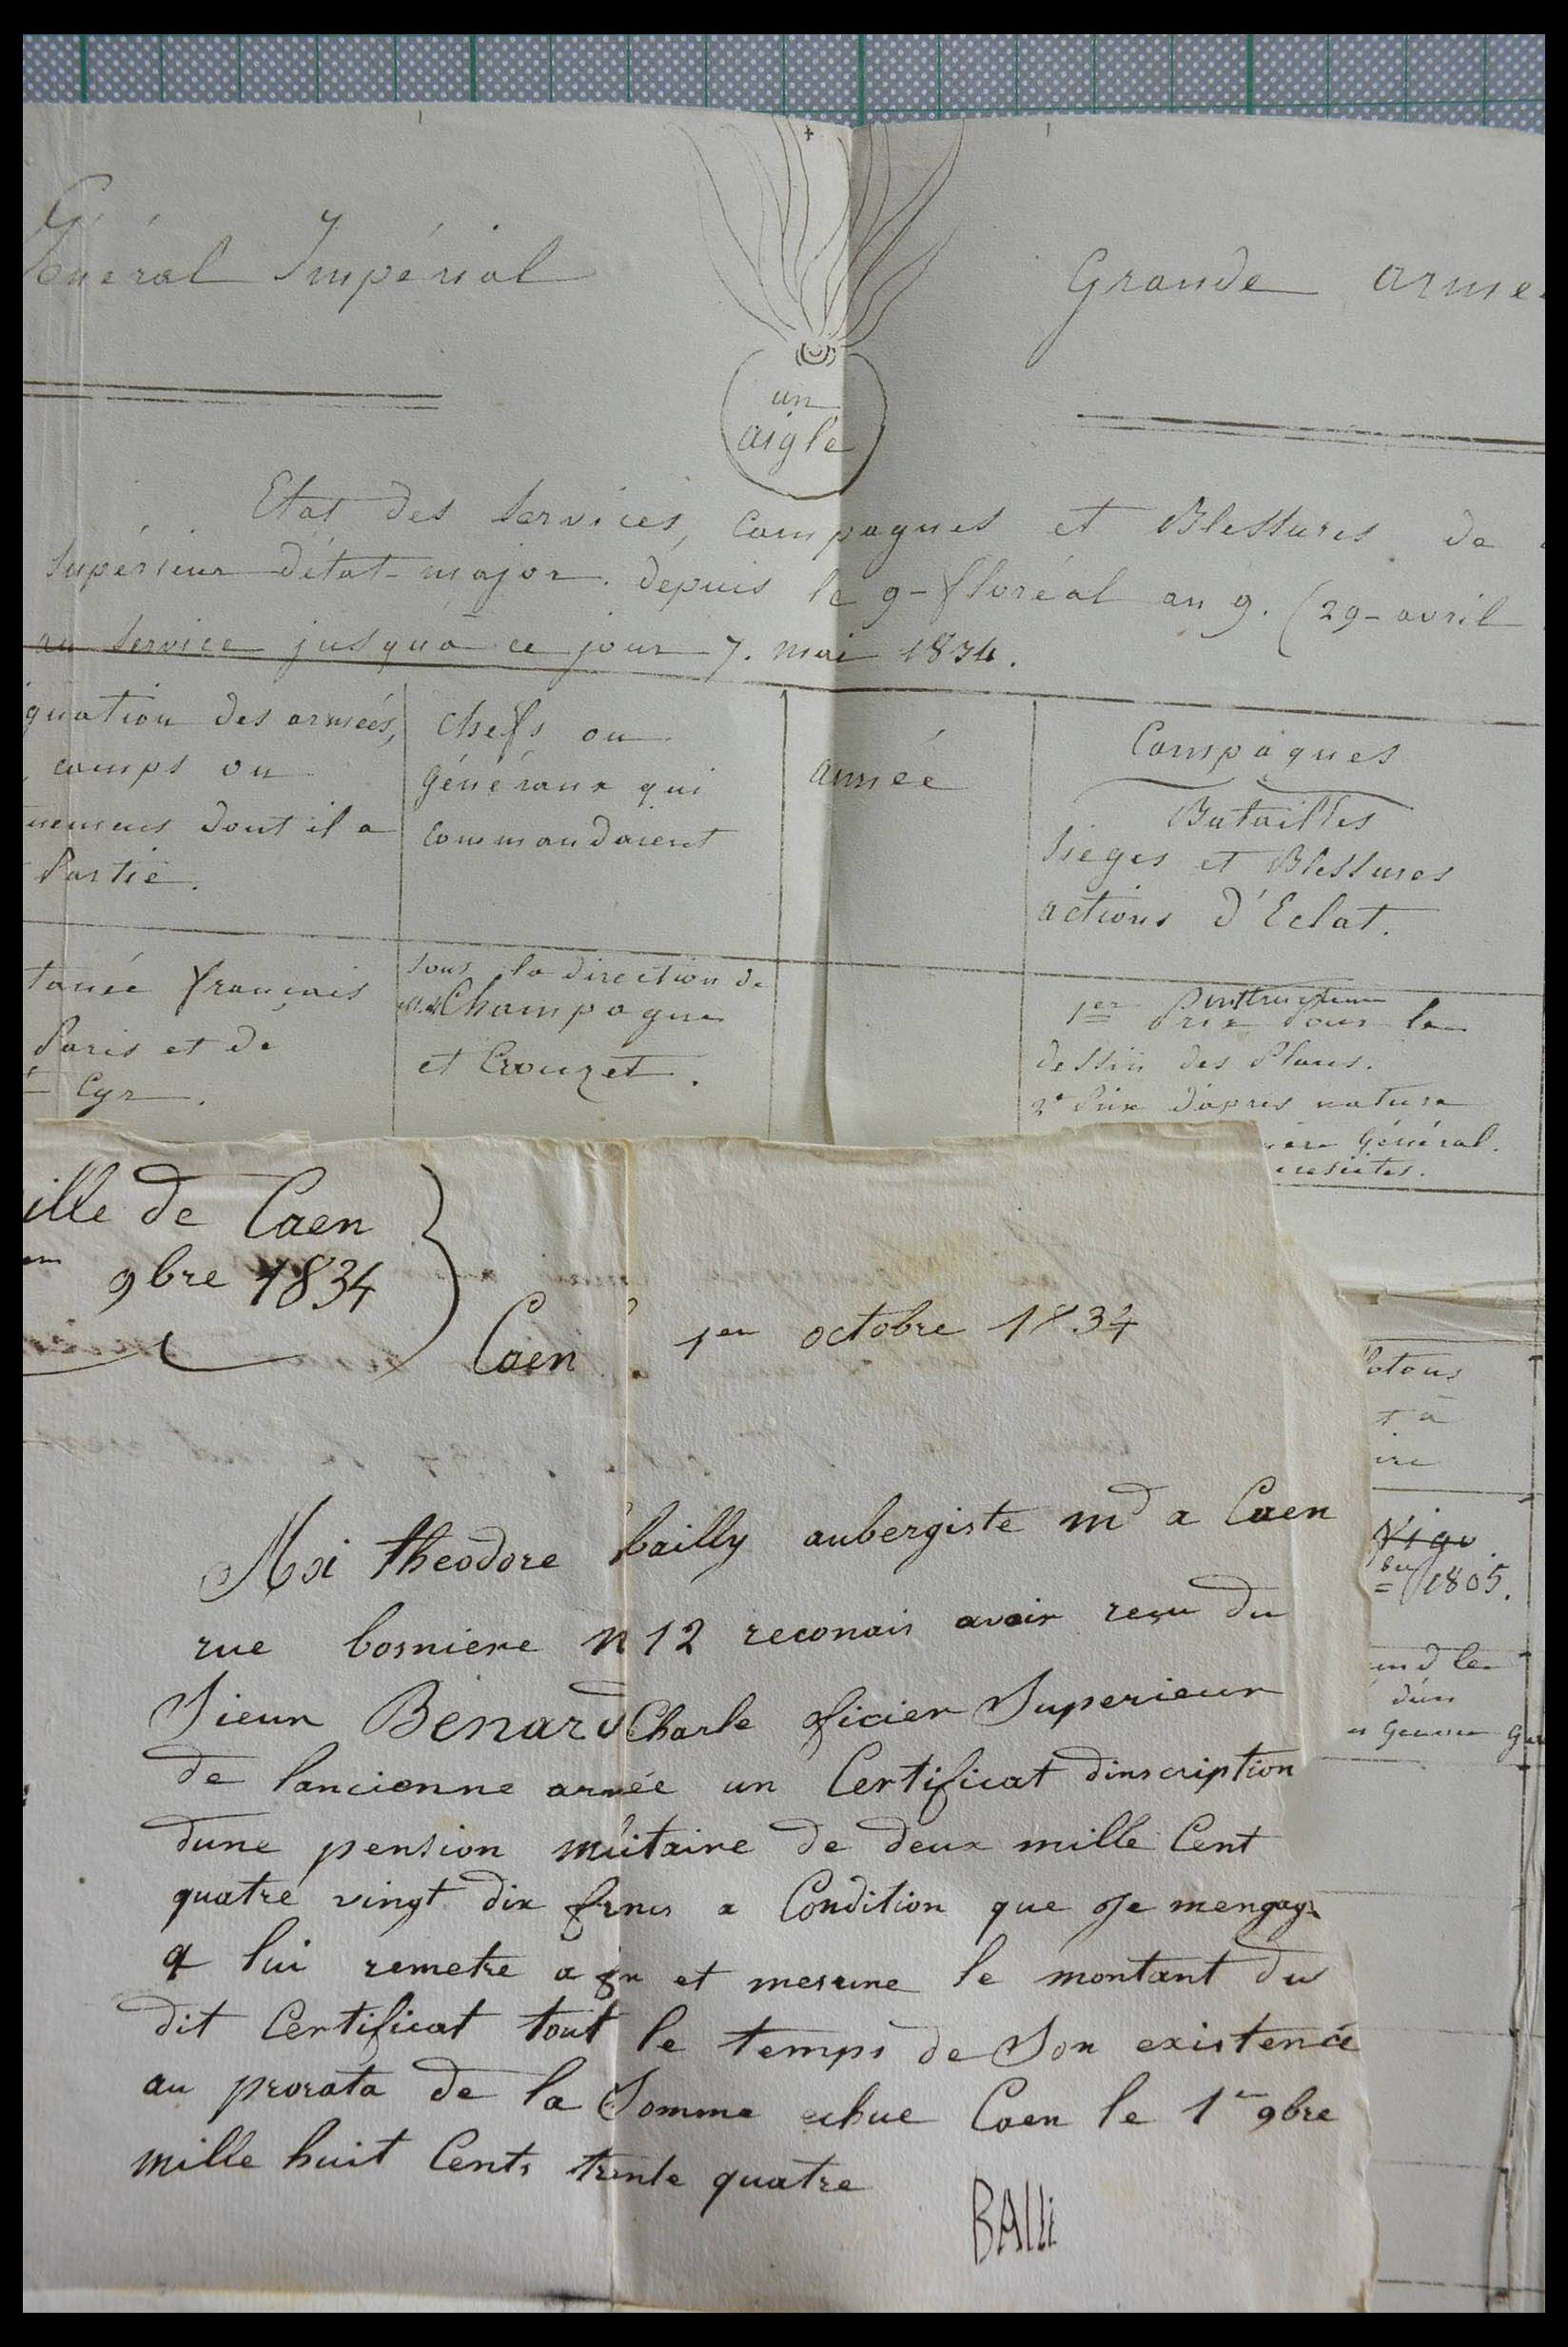 Général Impérial
Grande armée
un
aigle
Etat des Services, Campagnes et Blessures de
Supérieur d'état-major. depuis le 9-floréal an 9. (29-avril
au Service jusqu'à ce jour 7. mai 1834.
gnation des armées,
camps ou
nemens dont il a
Partie.
chefs ou
Généraux qui
commandaient
année
Campagnes
Batailles
Sieges et Blessures
actions d'Eclat.
tanée français
Paris et de
Cyr.
sous la direction de
Champagne
et Crouzet.
instruction
1er Prix Pour le
dessin des Plans.
2e Prix d'après nature
Général.
ille de Caen
9bre 1834
Caen 1er octobre 1834
Moi theodore bailly aubergiste md a Caen
rue bosniere n 12 reconais avoir reçu du
Sieur Bénard Charle oficier Superieur
de lancienne armée un Certificat dinscription
dune pension militaire de deux mille Cent
quatre vingt dix frncs a Condition que Je mengage
a lui remetre a fur et mesure le montant du
dit Certificat tout le temps de Son existence
au prorata de la Somme echue Caen le 1er 9bre
mille huit Cents trente quatre
BAlli
Vigo
1805.